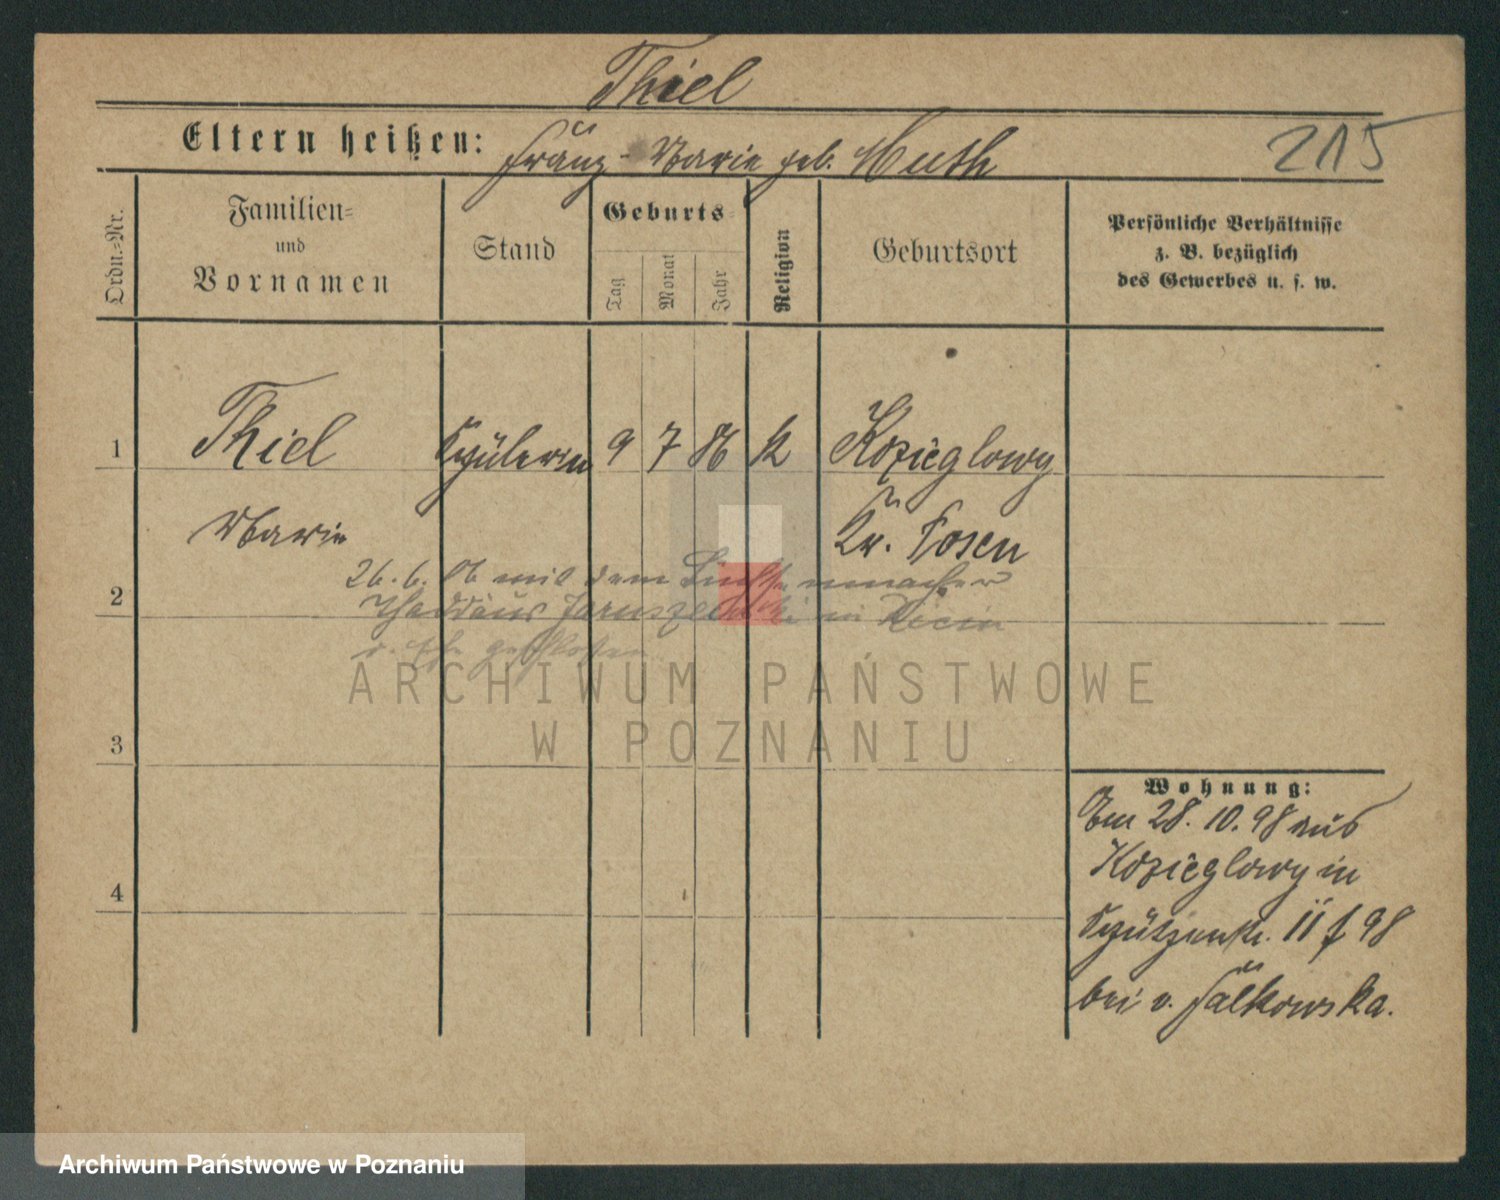 Thiel
Eltern heißen: Franz - Marie geb. Muth
215
Ordn.=Nr.
Familien=
und
Vornamen
Stand
Geburts=
Tag
Monat
Jahr
Religion
Geburtsort
Persönliche Verhältnisse
z. B. bezüglich
des Gewerbes u. s. w.
1
Thiel
Schülerin
9
7
86
K
Kozieglowy
Marie
Kr. Posen
26. 6. 06 mit dem
2
Thaddäus Jaruszewski in
d. Ehe geschlossen
ARCHIWUM PAŃSTWOWE
W POZNANIU
3
Wohnung:
Am 28. 10. 98 aus
Kozieglowy in
4
Schützenstr. 11 f 98
bei v. Falkowska.
Archiwum Państwowe w Poznaniu